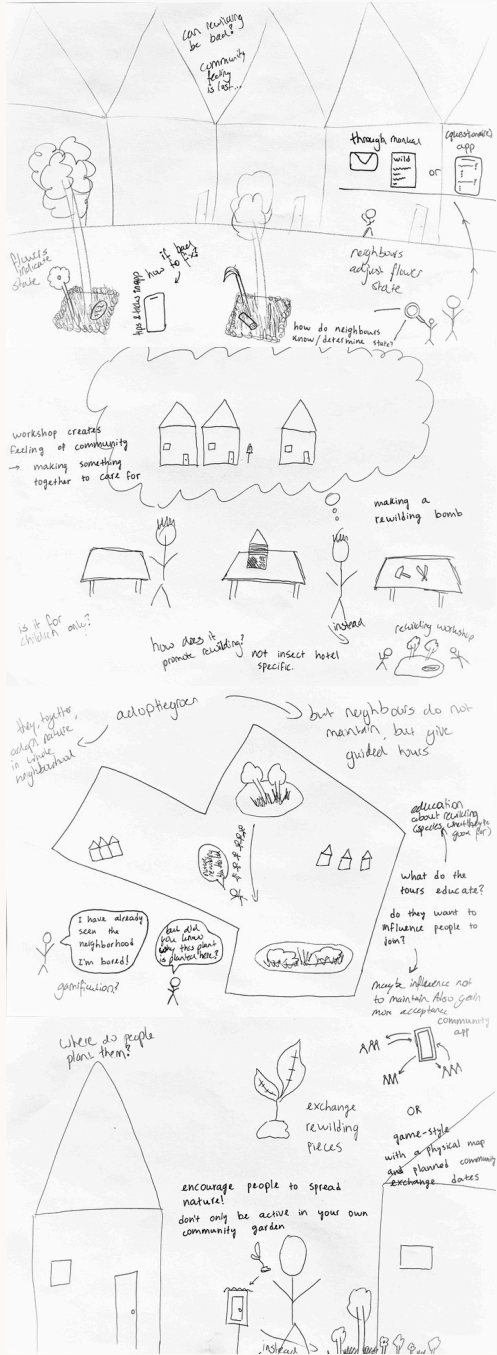 can rewilding
be bad?
community
feeling
is lost...
through manual
wild
or
(questionnaire)
app
flowers
indicate
state
if bad
how to fix?
tips & tricks in app
neighbours
adjust flower
state
how do neighbours
know/determine state?
workshop creates
feeling of community
→ making something
together to care for
making a
rewilding bomb
is it for
children only?
how does it
promote rewilding?
not insect hotel
specific.
instead
rewilding workshop
they, together,
adopt nature
in whole
neighbourhood
adoptiegroen
but neighbours do not
maintain, but give
guided tours
education
about rewilding
(species, what they're
good for)
what do the
tours educate?
do they want to
influence people to
join?
maybe influence not
to maintain. Also gain
more acceptance
I have already
seen the
neighborhood
I'm bored!
gamification?
but did
you know
why this plant
is planted here?
community
app
where do people
plant them?
exchange
rewilding
pieces
OR
game-style
with a physical map
and planned community
exchange dates
encourage people to spread
nature!
don't only be active in your own
community garden
instead